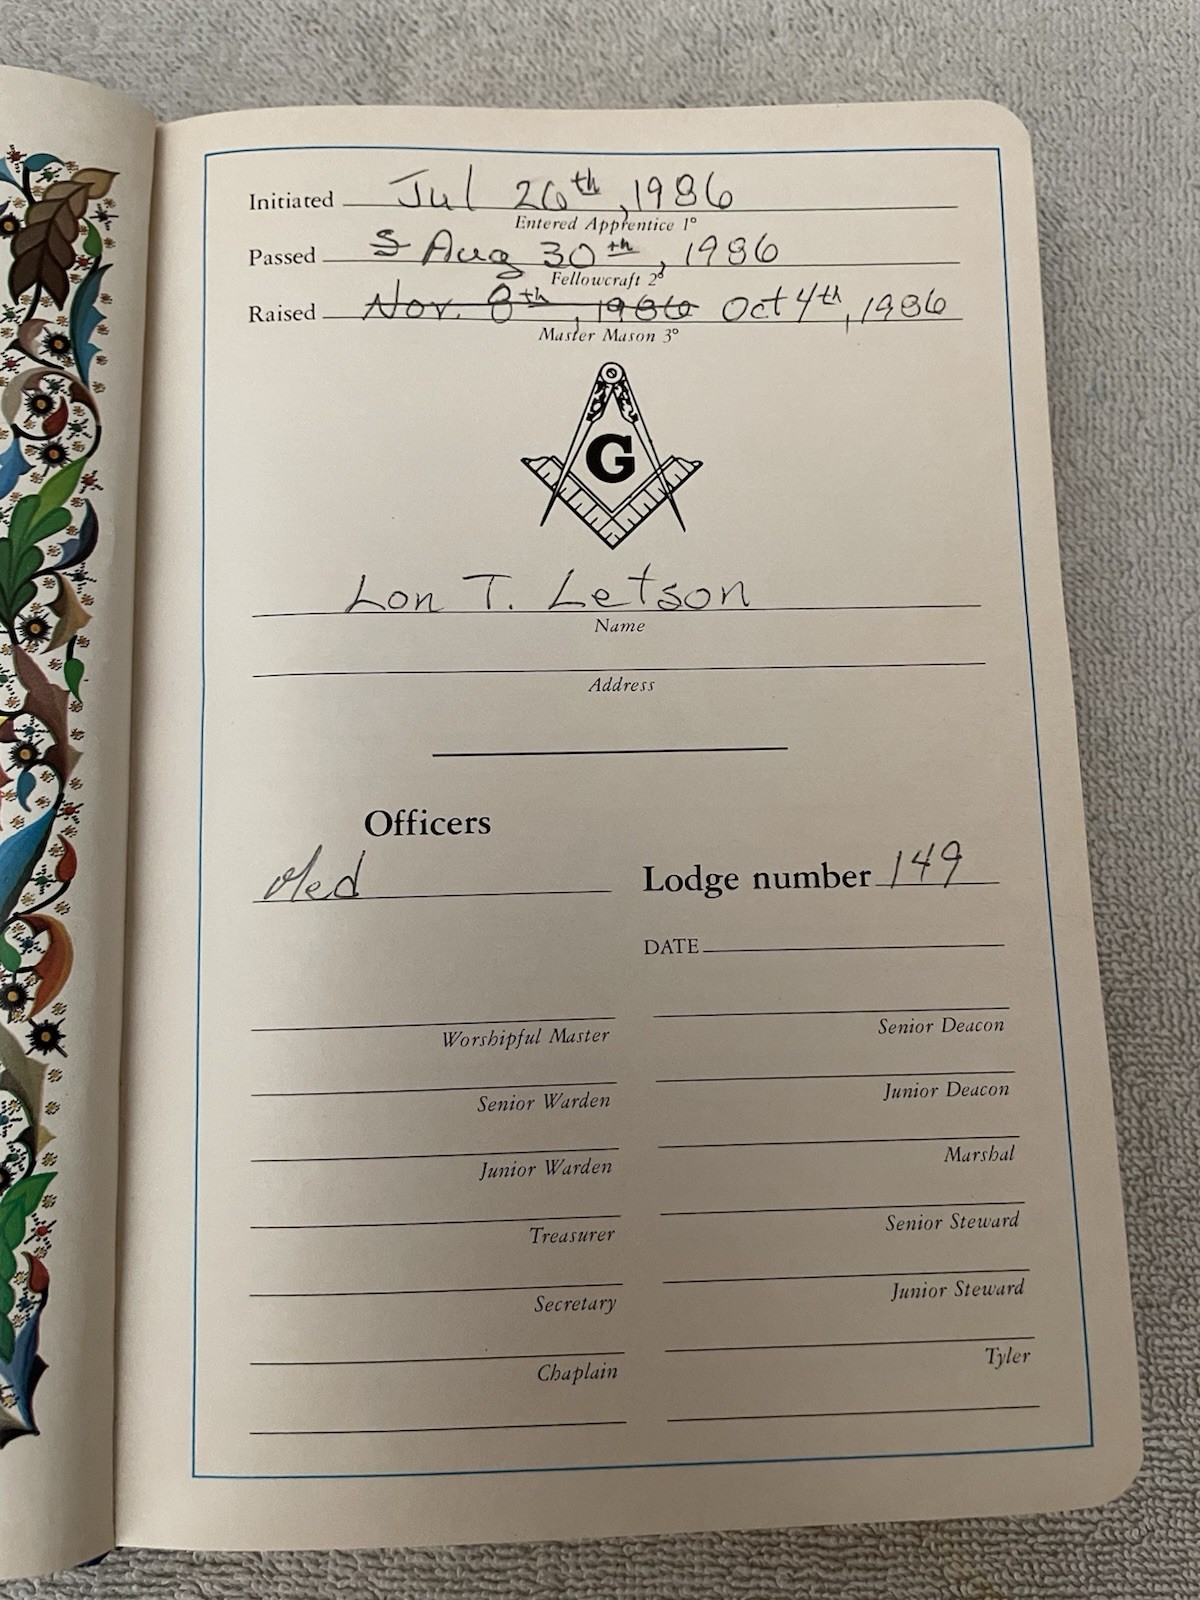 Initiated Jul 26th, 1986
Entered Apprentice 1°
Passed Aug 30th, 1986
Fellowcraft 2°
Raised Nov. 8th, 1986 Oct 4th, 1986
Master Mason 3°
G
Lon T. Letson
Name
Address
Officers
Lodge number 149
DATE
Worshipful Master
Senior Deacon
Senior Warden
Junior Deacon
Junior Warden
Marshal
Treasurer
Senior Steward
Secretary
Junior Steward
Chaplain
Tyler